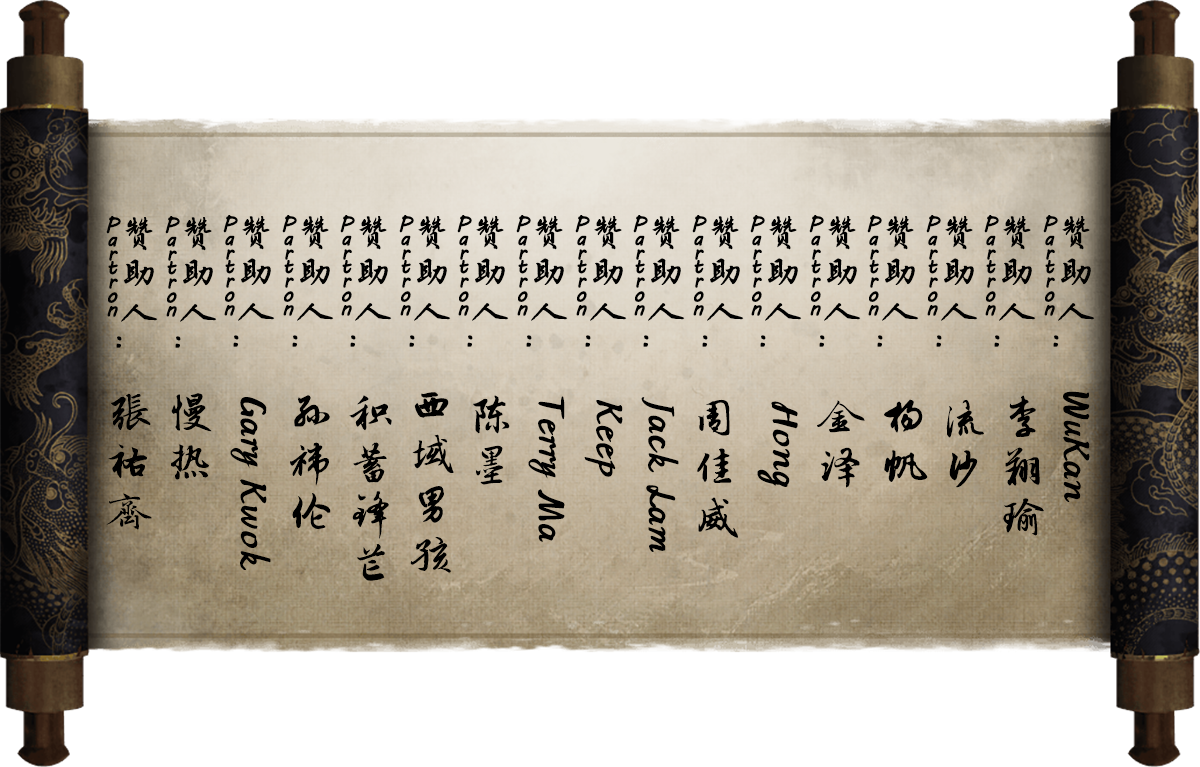 赞助人 Partron：WuKan
赞助人 Partron：李翔瑜
赞助人 Partron：流沙
赞助人 Partron：杨帆
赞助人 Partron：金泽
赞助人 Partron：Hong
赞助人 Partron：周佳威
赞助人 Partron：Jack Lam
赞助人 Partron：Keep
赞助人 Partron：Terry Ma
赞助人 Partron：陈墨
赞助人 Partron：西域男孩
赞助人 Partron：积蓄锋芒
赞助人 Partron：孙祎伦
赞助人 Partron：Gary Kwok
赞助人 Partron：慢热
赞助人 Partron：張祐齊